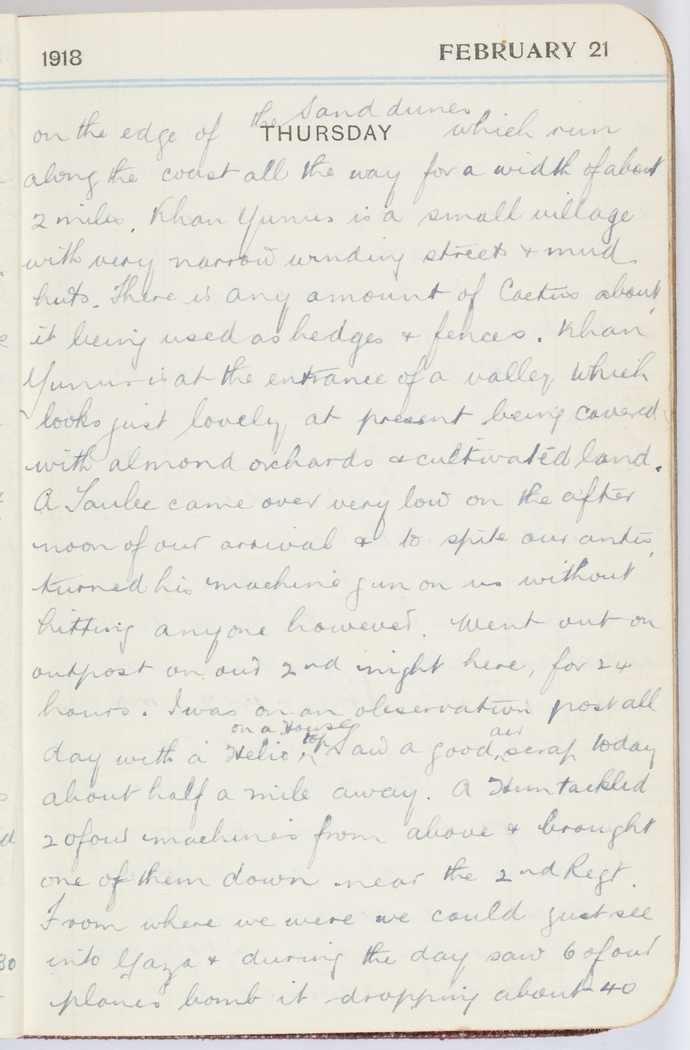 1918 FEBRUARY 21
THURSDAY
on the edge of the Sand dunes which run
along the coast all the way for a width of about
2 miles. Khan Yunus is a small village
with very narrow winding streets & mud
huts. There is any amount of Cactus about
it being used as hedges & fences. Khan
Yunus is at the entrance of a valley which
looks just lovely at present being covered
with almond orchards & cultivated land.
A Taube came over very low on the after
noon of our arrival & to spite our antis
turned his machine gun on us without
hitting anyone however. Went out on
outpost on our 2nd night here, for 24
hours. I was on an observation post all
day with a Helio on a House top. Saw a good air scrap today
about half a mile away. A Hun tackled
2 of our machines from above & brought
one of them down near the 2nd Regt.
From where we were we could just see
into Gaza & during the day saw 6 of our
planes bomb it dropping about 40